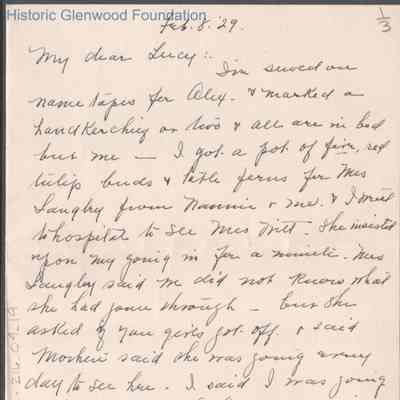 Historic Glenwood Foundation
1/3
Feb. 8. '29.
My dear Lucy:.
I've sewed on
name tapes for Alex. & marked a
handkerchief or two & all are in bed
but me — I got a pot of five, red
tulip buds & little ferns for Mrs
Langley from Nannie & me. & I went
to hospital to see Mrs Witt. She insisted
upon my going in for a minute. Mrs
Langley said we did not know what
she had gone through – but she
asked if you girls got off & said
Mother said she was going every
day to see her. I said I was going